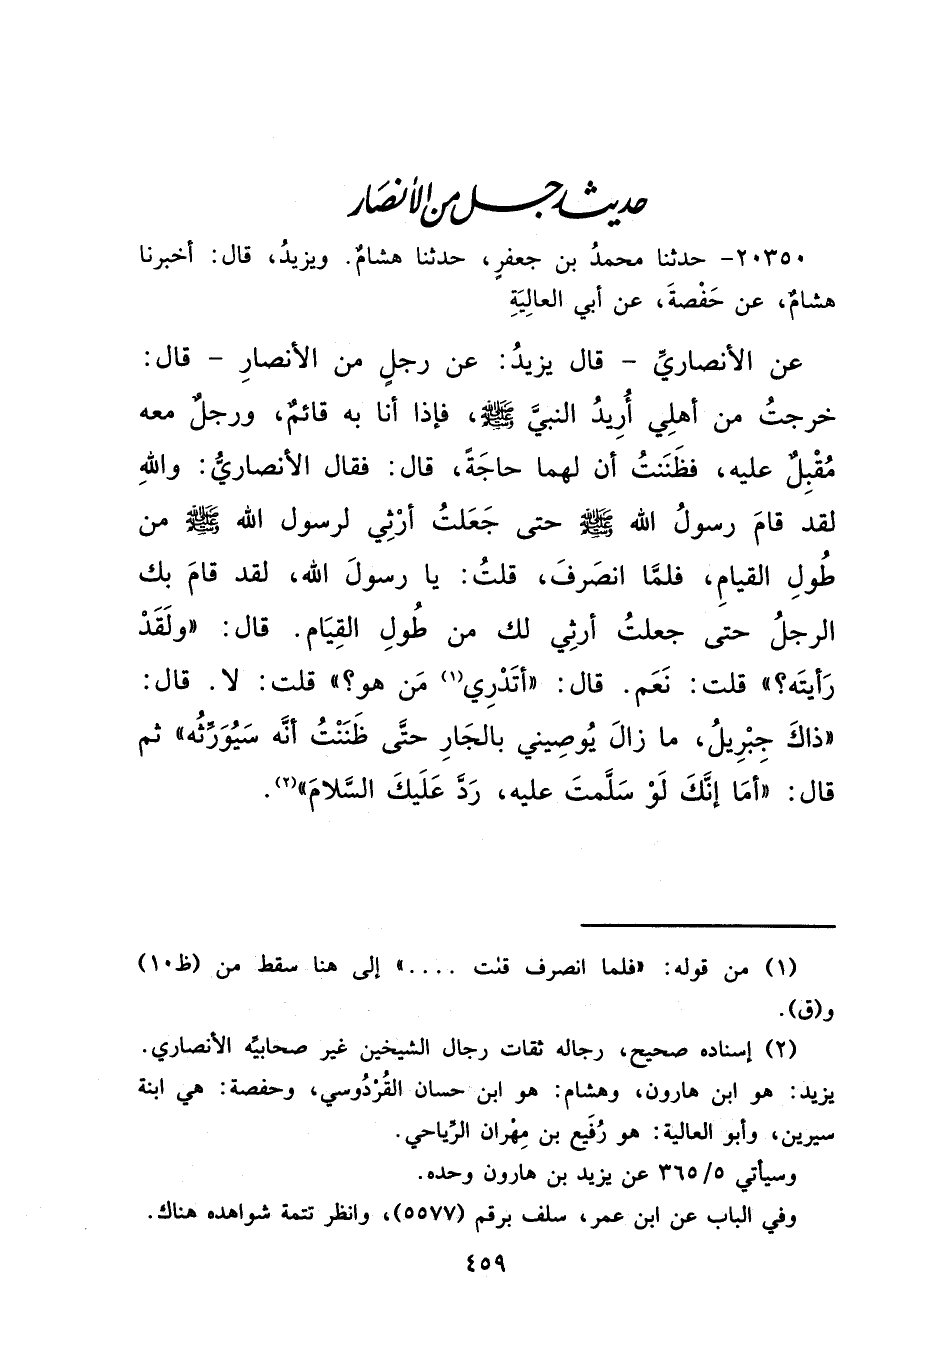 حديث رجل من الأنصار
٢٠٣٥٠- حدثنا محمدُ بن جعفرٍ، حدثنا هشامٌ. ويزيدُ، قال: أخبرنا
هشامٌ، عن حَفْصةَ، عن أبي العالِيَةِ
عن الأنصاريِّ - قال يزيدُ: عن رجلٍ من الأنصارِ - قال:
خرجتُ من أهلِي أُرِيدُ النبيَّ ﷺ، فإذا أنا به قائمٌ، ورجلٌ معه
مُقْبِلٌ عليه، فظَنَنتُ أن لهما حاجَةً، قال: فقال الأنصاريُّ: واللهِ
لقد قامَ رسولُ الله ﷺ حتى جَعَلتُ أرْثِي لرسول الله ﷺ من
طُولِ القيامِ، فلمَّا انصَرفَ، قلتُ: يا رسولَ الله، لقد قامَ بك
الرجلُ حتى جعلتُ أرثِي لك من طُولِ القِيَام. قال: «ولَقَدْ
رَأيتَه؟» قلت: نَعَم. قال: «أتَدْرِي(١) مَن هو؟» قلت: لا. قال:
«ذاكَ جِبْرِيلُ، ما زالَ يُوصِيني بالجَارِ حتَّى ظَنَنْتُ أنَّه سَيُوَرِّثُه» ثم
قال: «أمَا إنَّكَ لَوْ سَلَّمتَ عليه، رَدَّ عَلَيكَ السَّلامَ»(٢).
(١) من قوله: «فلما انصرف قلت ....» إلى هنا سقط من (ظ١٠)
و(ق).
(٢) إسناده صحيح، رجاله ثقات رجال الشيخين غير صحابيِّه الأنصاري.
يزيد: هو ابن هارون، وهشام: هو ابن حسان القُرْدُوسي، وحفصة: هي ابنة
سيرين، وأبو العالية: هو رُفَيع بن مِهْران الرِّياحي.
وسيأتي ٣٦٥/٥ عن يزيد بن هارون وحده.
وفي الباب عن ابن عمر، سلف برقم (٥٥٧٧)، وانظر تتمة شواهده هناك.
٤٥٩